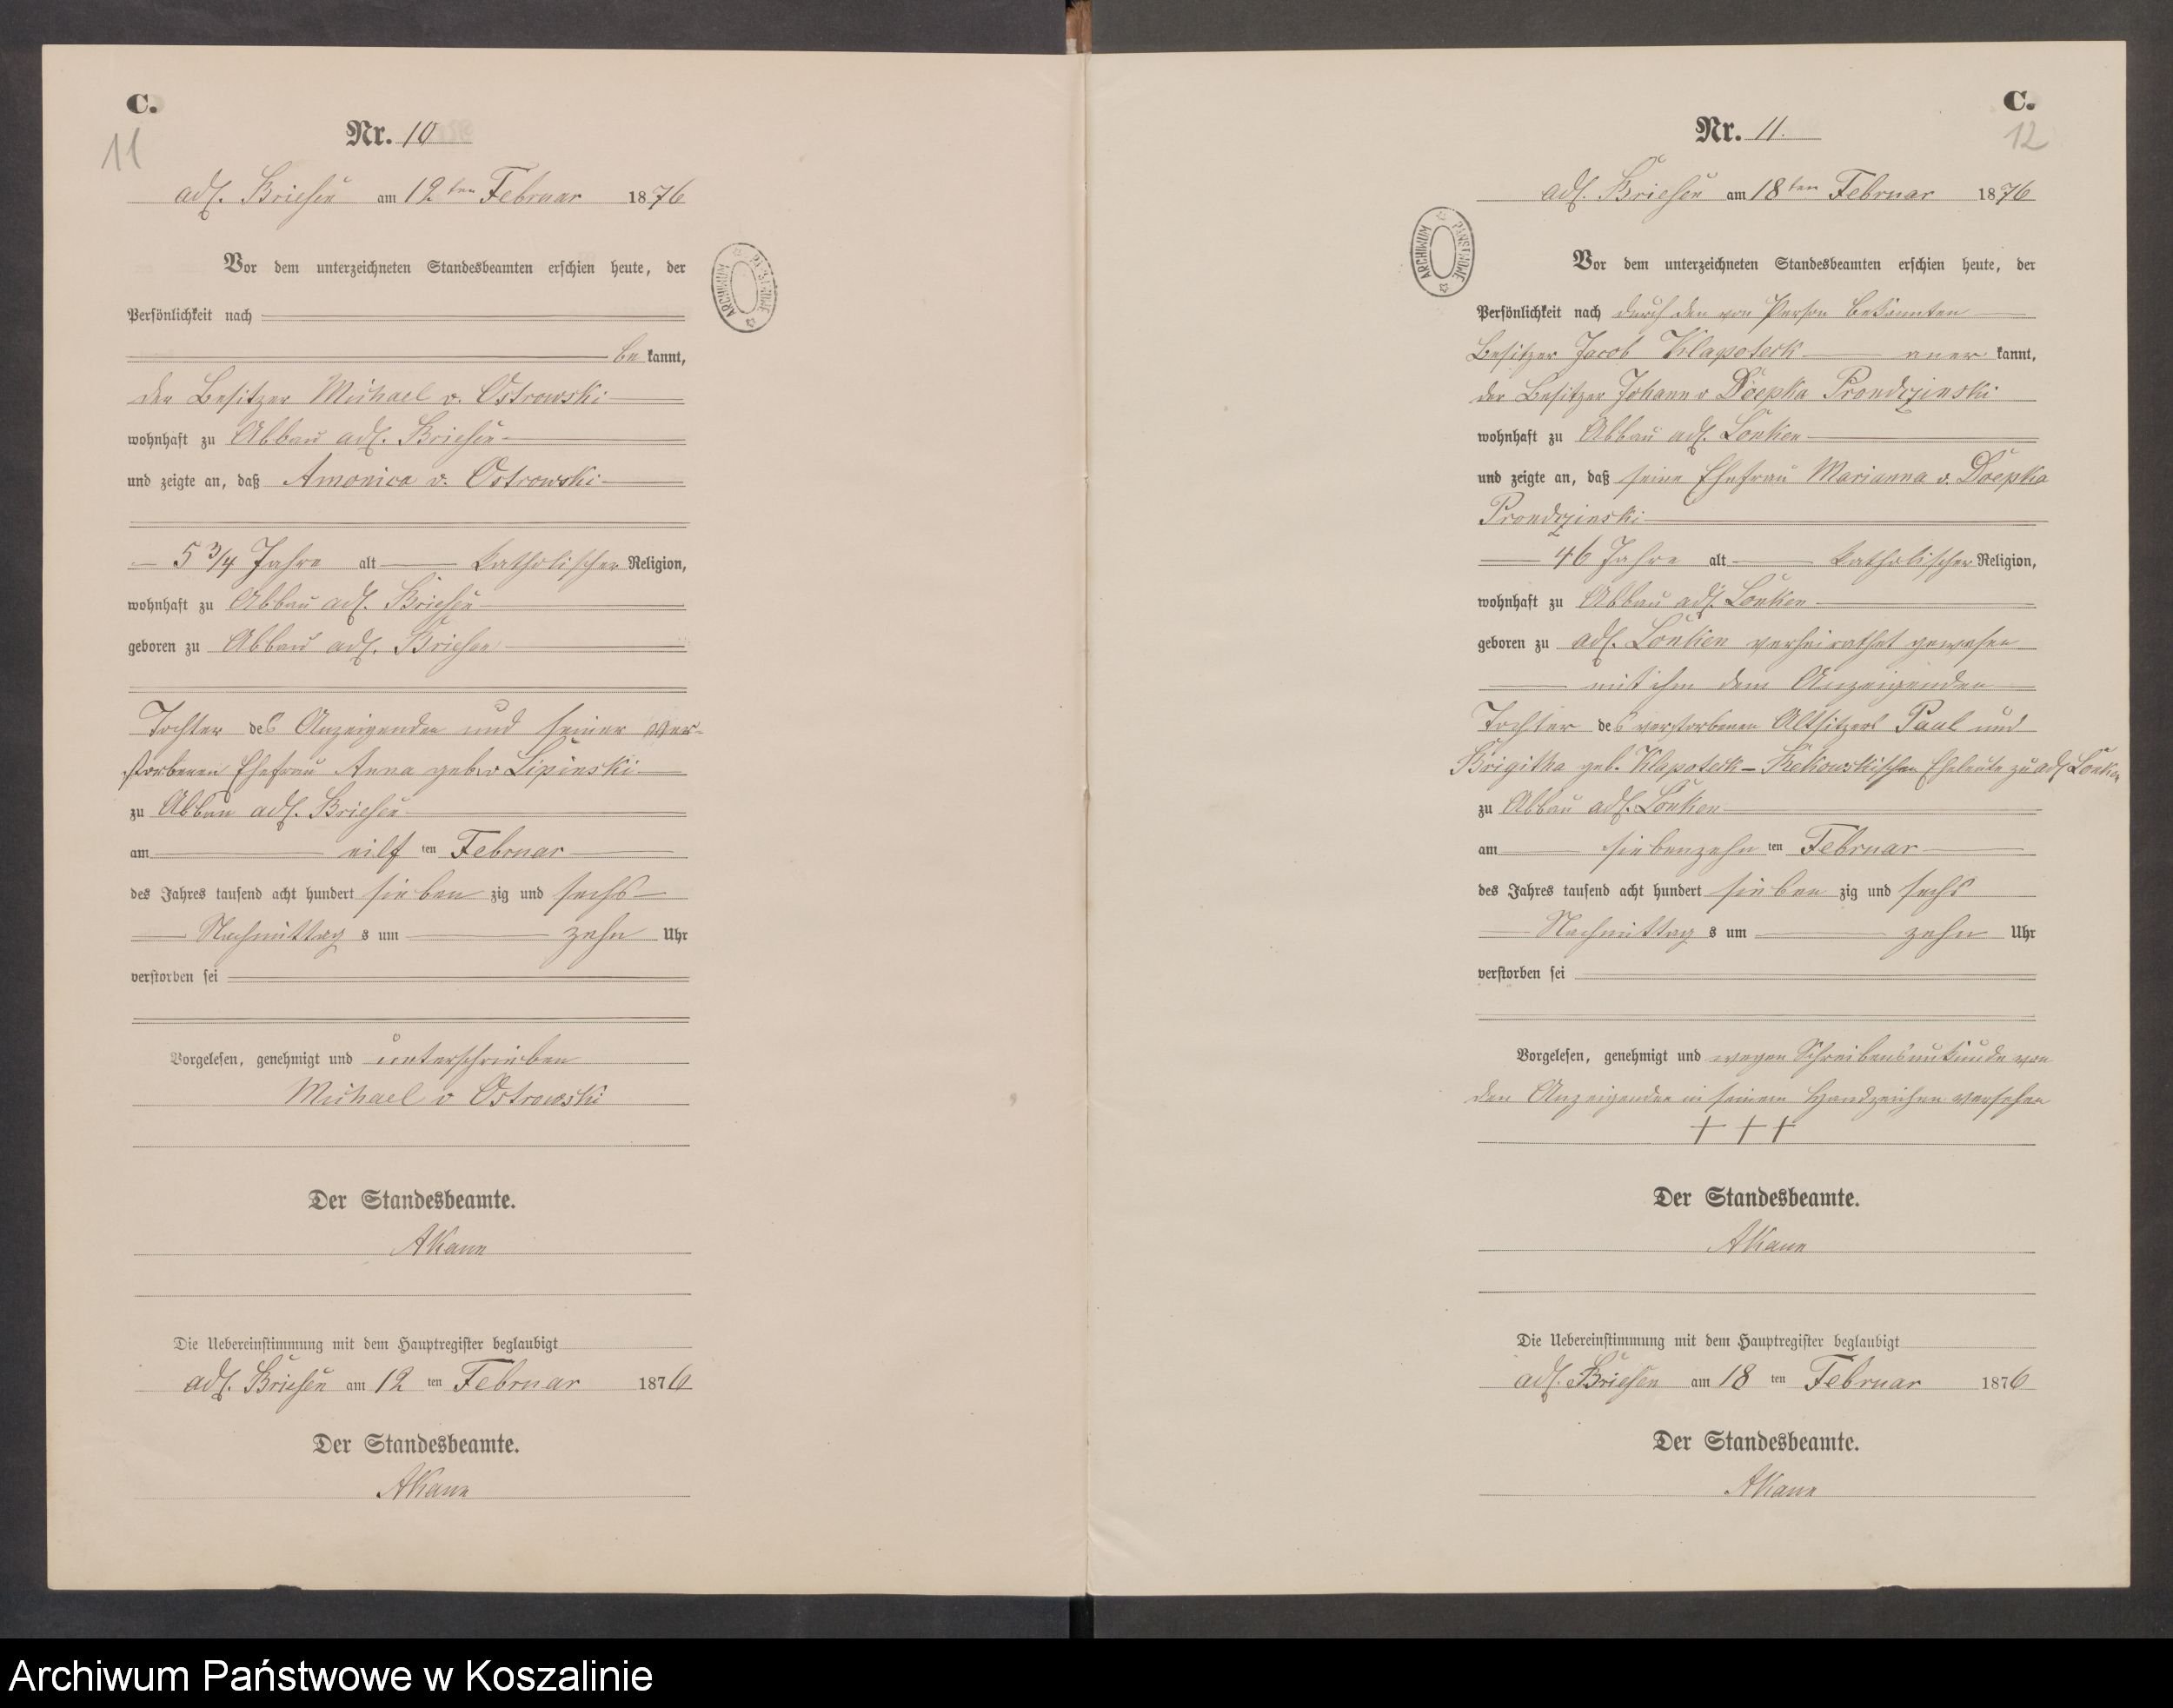 C.
11
Nr. 10
adl. Briesen am 12ten Februar 1876
Vor dem unterzeichneten Standesbeamten erschien heute, der
Persönlichkeit nach
be kannt,
der Besitzer Michael v. Ostrowski
wohnhaft zu Abbau adl. Briesen
und zeigte an, daß Amonica v. Ostrowski
5 3/4 Jahre alt katholischer Religion,
wohnhaft zu Abbau adl. Briesen
geboren zu Abbau adl. Briesen
Tochter des Anzeigenden und seiner ver-
storbenen Ehefrau Anna geb. v Lipinski
zu Abbau adl. Briesen
am eilf ten Februar
des Jahres tausend acht hundert sieben zig und sechs
Nachmittag s um zehn Uhr
verstorben sei
Vorgelesen, genehmigt und unterschrieben
Michael v Ostrowski
Der Standesbeamte.
AKaun
Die Uebereinstimmung mit dem Hauptregister beglaubigt
adl. Briesen am 12 ten Februar 1876
Der Standesbeamte.
AKaun
ARCHIWUM PAŃSTWOWE
C.
12
Nr. 11.
adl. Briesen am 18ten Februar 1876
ARCHIWUM PAŃSTWOWE
Vor dem unterzeichneten Standesbeamten erschien heute, der
Persönlichkeit nach durch den von Person bekannten
Besitzer Jacob Klapoteck aner kannt,
der Besitzer Johann v Döepka Prondzinski
wohnhaft zu Abbau adl. Lonken
und zeigte an, daß seine Ehefrau Marianna v. Döepka
Prondzinski
46 Jahre alt katholischer Religion,
wohnhaft zu Abbau adl. Lonken
geboren zu adl. Lonken verheirathet gewesen
mit ihm dem Anzeigenden
Tochter des verstorbenen Altsitzers Paul und
Brigitha geb. Klapoteck - Rekowskischen Eheleute zu adl. Lonken
zu Abbau adl. Lonken
am siebenzehn ten Februar
des Jahres tausend acht hundert sieben zig und sechs
Nachmittag s um zehn Uhr
verstorben sei
Vorgelesen, genehmigt und wegen Schreibensunkunde von
den Anzeigenden in seinem Handzeichen versehen
+ + +
Der Standesbeamte.
AKaun
Die Uebereinstimmung mit dem Hauptregister beglaubigt
adl. Briesen am 18 ten Februar 1876
Der Standesbeamte.
AKaun
Archiwum Państwowe w Koszalinie